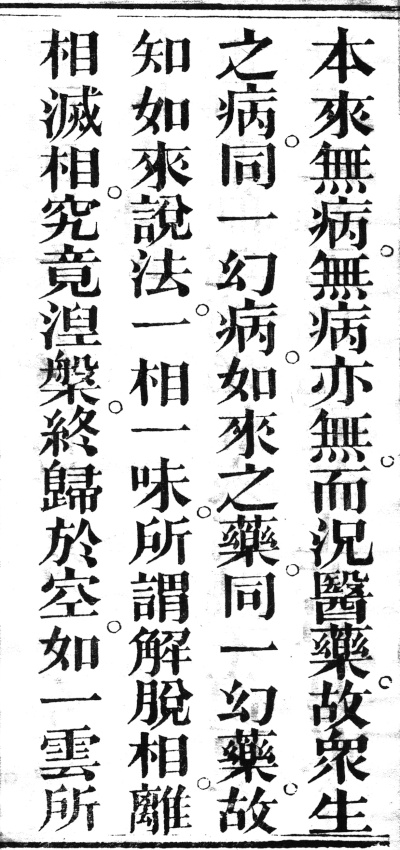 本來無病。無病亦無。而況醫藥。故衆生
之病。同一幻病。如來之藥。同一幻藥。故
知如來說法。一相一味。所謂解脫相。離
相滅相。究竟涅槃。終歸於空。如一雲所